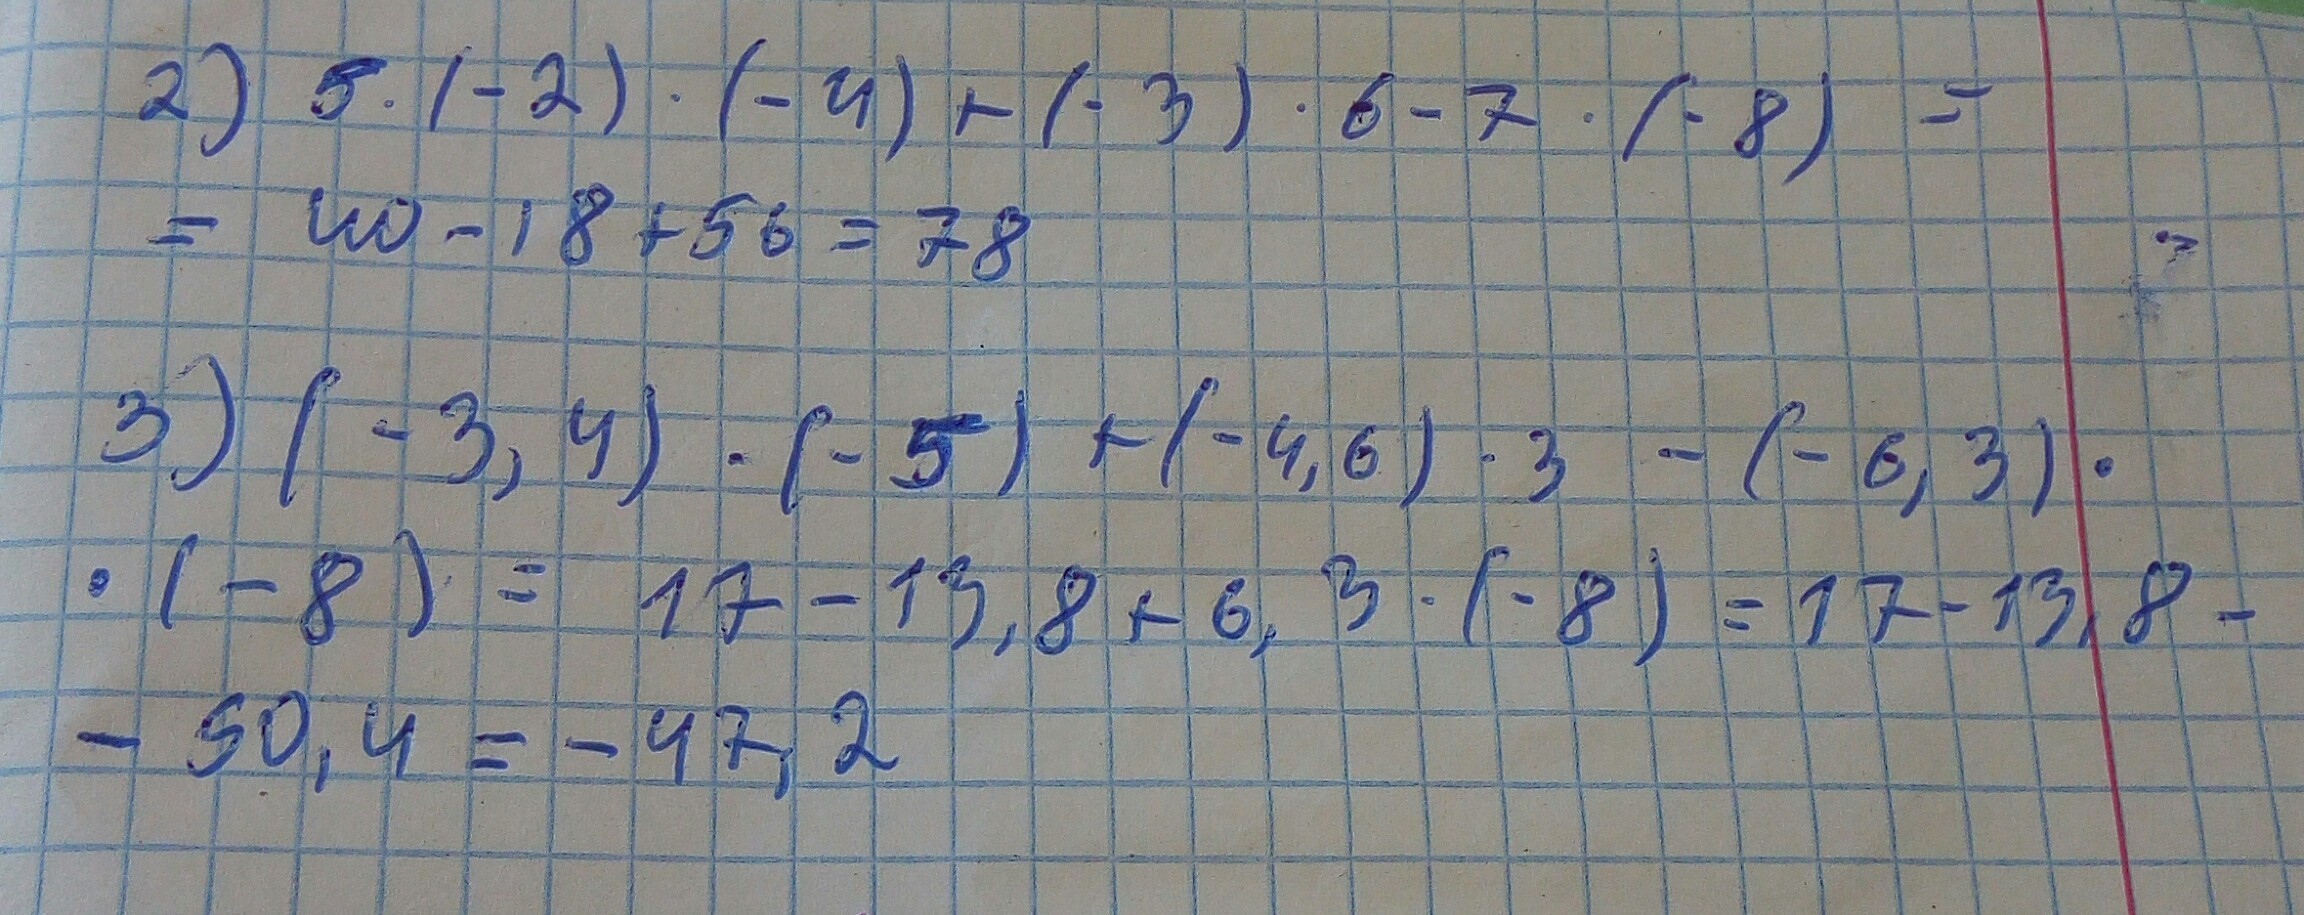 2) 5·(-2)·(-4)+(-3)·6-7·(-8) =
= 40-18+56=78
3) (-3,4)·(-5)+(-4,6)·3-(-6,3)·
·(-8) = 17-13,8+6,3·(-8)=17-13,8-
-50,4=-47,2